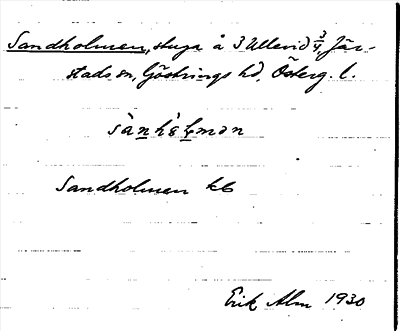 Sandholmen, stuga å 3 Ullevid 3/4, Jär-
stads sn, Göstrings hd, Österg. l.
Sandholmen kb
Erik Alm 1930